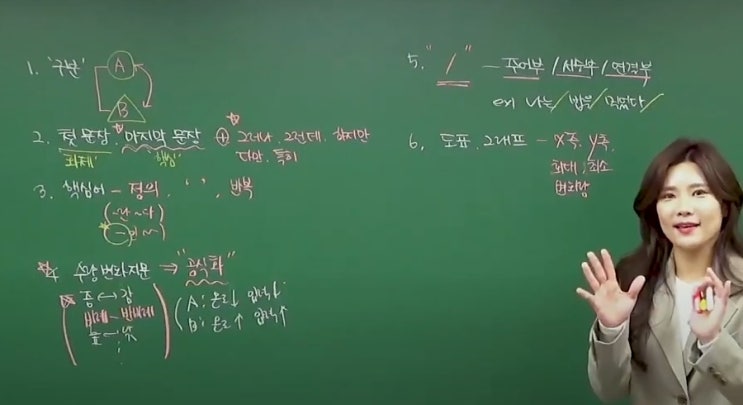 1. '구분' A
B
2. 첫 문장, 마지막 문장 ⊕ 그러나, 그런데, 하지만
화제 핵심 다만, 특히
3. 핵심어 - 정의, ' ', 반복
(~란 ~다)
4. 수량변화지문 ⇒ "공식화"
증 ↔ 감
비례 - 반비례
A: 온도↓ 압력↓
B: 온도↑ 압력↑
5. "/" - 주어부 / 서술부 / 연결부
ex) 나는 / 밥을 / 먹었다 /
6. 도표, 그래프 - X축, Y축,
최대, 최소
변화량